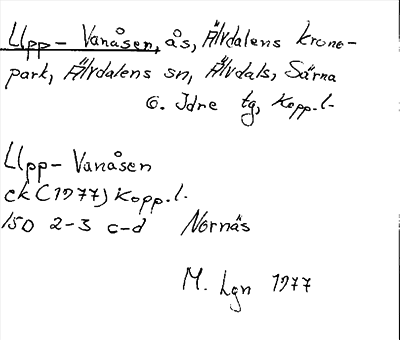 Upp-Vanåsen, ås, Älvdalens krono-
park, Älvdalens sn, Älvdals, Särna
o. Idre tg, Kopp.l.
Upp-Vanåsen
ek (1977) Kopp.l.
15D 2-3 c-d Nornäs
M. Lgn 1977